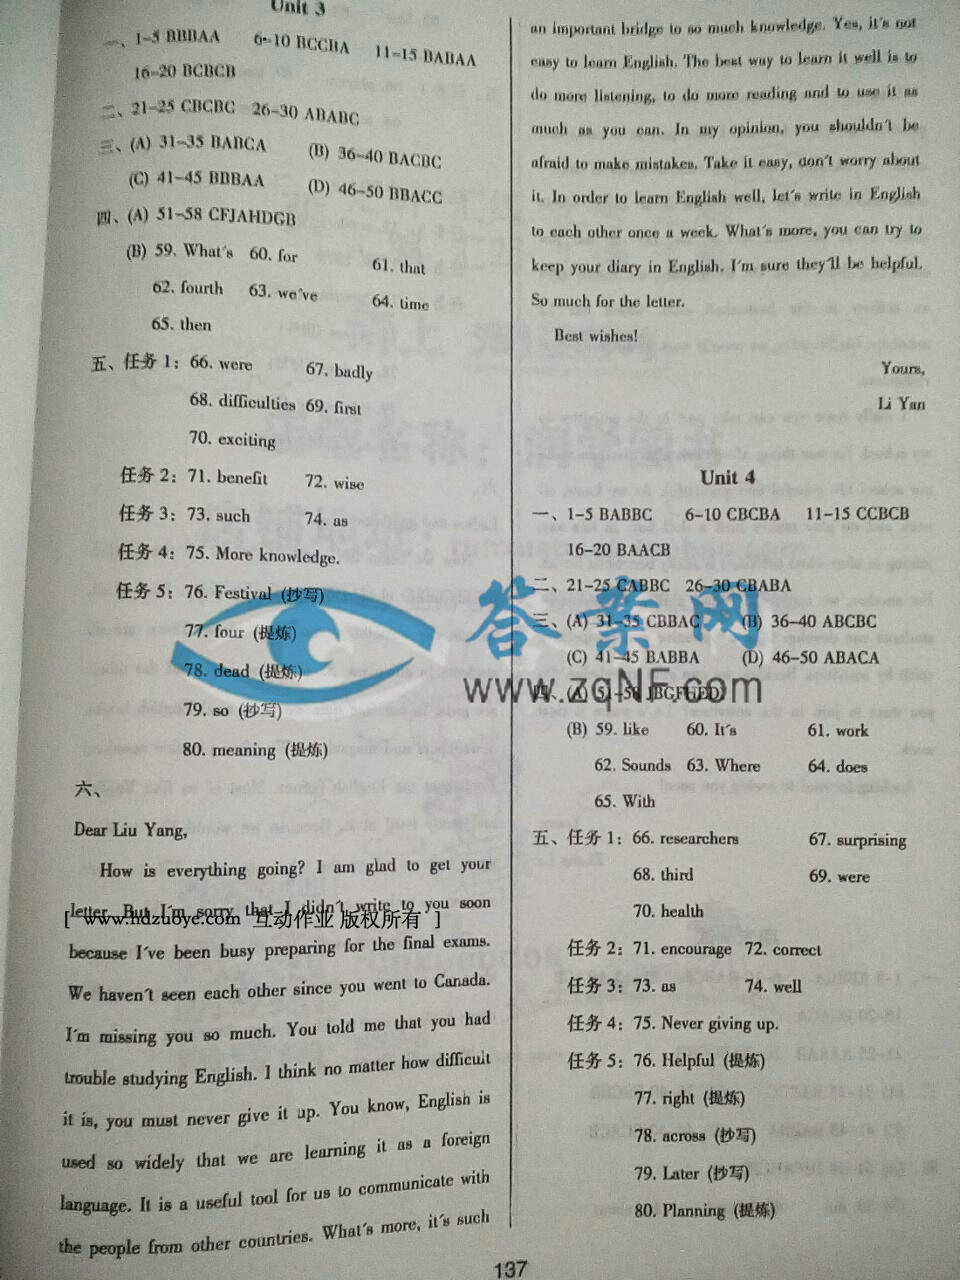 Unit 3
一、1-5 BBBAA 6-10 BCCBA 11-15 BABAA
16-20 BCBCB
二、21-25 CBCBC 26-30 ABABC
三、(A) 31-35 BABCA (B) 36-40 BACBC
(C) 41-45 BBBAA (D) 46-50 BBACC
四、(A) 51-58 CFJAHDGB
(B) 59. What's 60. for 61. that
62. fourth 63. we've 64. time
65. then
五、任务 1: 66. were 67. badly
68. difficulties 69. first
70. exciting
任务 2: 71. benefit 72. wise
任务 3: 73. such 74. as
任务 4: 75. More knowledge.
任务 5: 76. Festival (抄写)
77. four (提炼)
78. dead (提炼)
79. so (抄写)
80. meaning (提炼)
六、
Dear Liu Yang,
How is everything going? I am glad to get your
letter. But I'm sorry that I didn't write to you soon
[ www.hdzuoye.com 互动作业 版权所有 ]
because I've been busy preparing for the final exams.
We haven't seen each other since you went to Canada.
I'm missing you so much. You told me that you had
trouble studying English. I think no matter how difficult
it is, you must never give it up. You know, English is
used so widely that we are learning it as a foreign
language. It is a useful tool for us to communicate with
the people from other countries. What's more, it's such
an important bridge to so much knowledge. Yes, it's not
easy to learn English. The best way to learn it well is to
do more listening, to do more reading and to use it as
much as you can. In my opinion, you shouldn't be
afraid to make mistakes. Take it easy, don't worry about
it. In order to learn English well, let's write in English
to each other once a week. What's more, you can try to
keep your diary in English. I'm sure they'll be helpful.
So much for the letter.
Best wishes!
Yours,
Li Yan
Unit 4
一、1-5 BABBC 6-10 CBCBA 11-15 CCBCB
16-20 BAACB
二、21-25 CABBC 26-30 CBABA
三、(A) 31-35 CBBAC (B) 36-40 ABCBC
(C) 41-45 BABBA (D) 46-50 ABACA
答案网
www.zqNF.com
四、(A) 51-58 JBGFHEDI
(B) 59. like 60. It's 61. work
62. Sounds 63. Where 64. does
65. With
五、任务 1: 66. researchers 67. surprising
68. third 69. were
70. health
任务 2: 71. encourage 72. correct
任务 3: 73. as 74. well
任务 4: 75. Never giving up.
任务 5: 76. Helpful (提炼)
77. right (提炼)
78. across (抄写)
79. Later (抄写)
80. Planning (提炼)
137